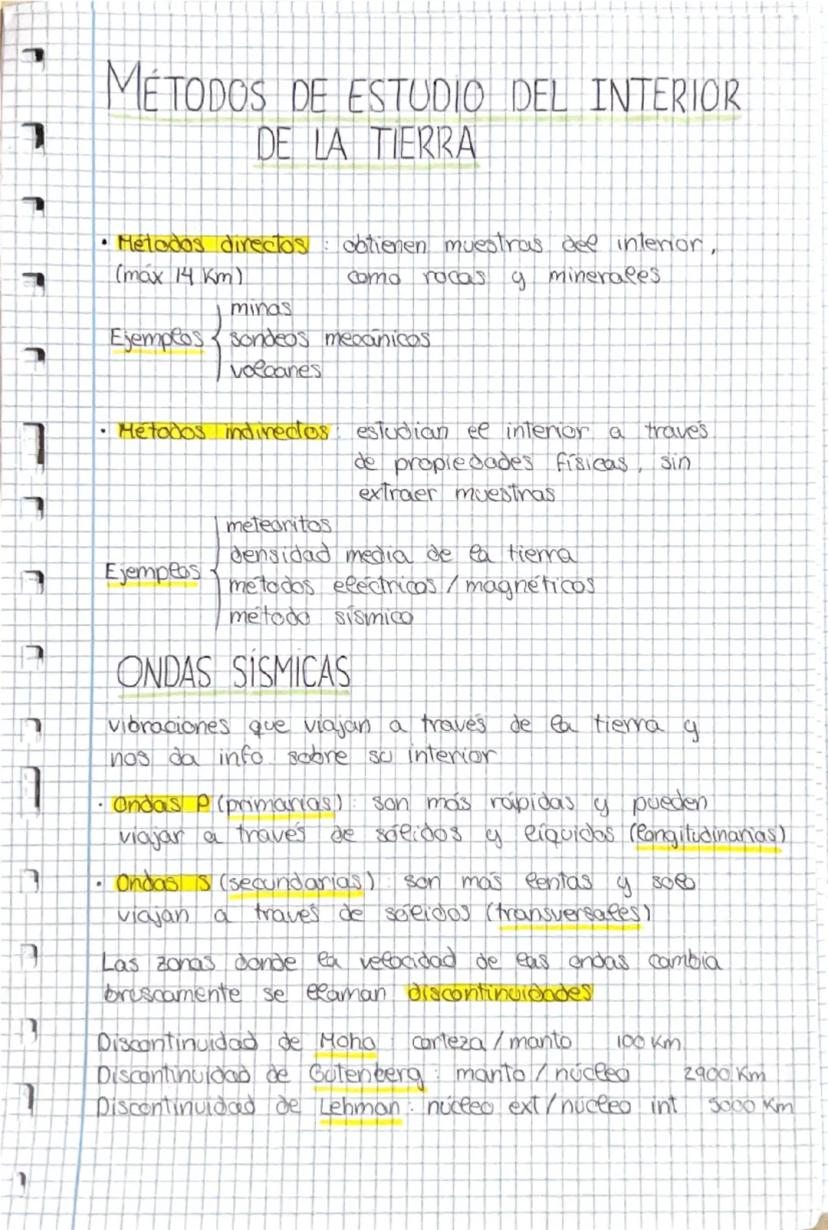 MÉTODOS DE ESTUDIO DEL INTERIOR
DE LA TIERRA
· Métodos directos : obtienen muestras del interior,
(máx 14 Km) como rocas y minerales
Ejemplos { minas
sondeos mecánicos
volcanes
· Métodos indirectos : estudian el interior a través
de propiedades físicas, sin
extraer muestras
Ejemplos { meteoritos
densidad media de la tierra
métodos eléctricos / magnéticos
método sísmico
ONDAS SÍSMICAS
vibraciones que viajan a través de la tierra y
nos da info sobre su interior
· Ondas P (primarias) : son más rápidas y pueden
viajar a través de sólidos y líquidos (longitudinarias)
· Ondas S (secundarias) : son más lentas y solo
viajan a través de sólidos (transversales)
Las zonas donde la velocidad de las ondas cambia
bruscamente se llaman discontinuidades
Discontinuidad de Moho : corteza / manto 100 Km
Discontinuidad de Gutenberg : manto / núcleo 2900 Km
Discontinuidad de Lehman : núcleo ext / núcleo int 5000 Km